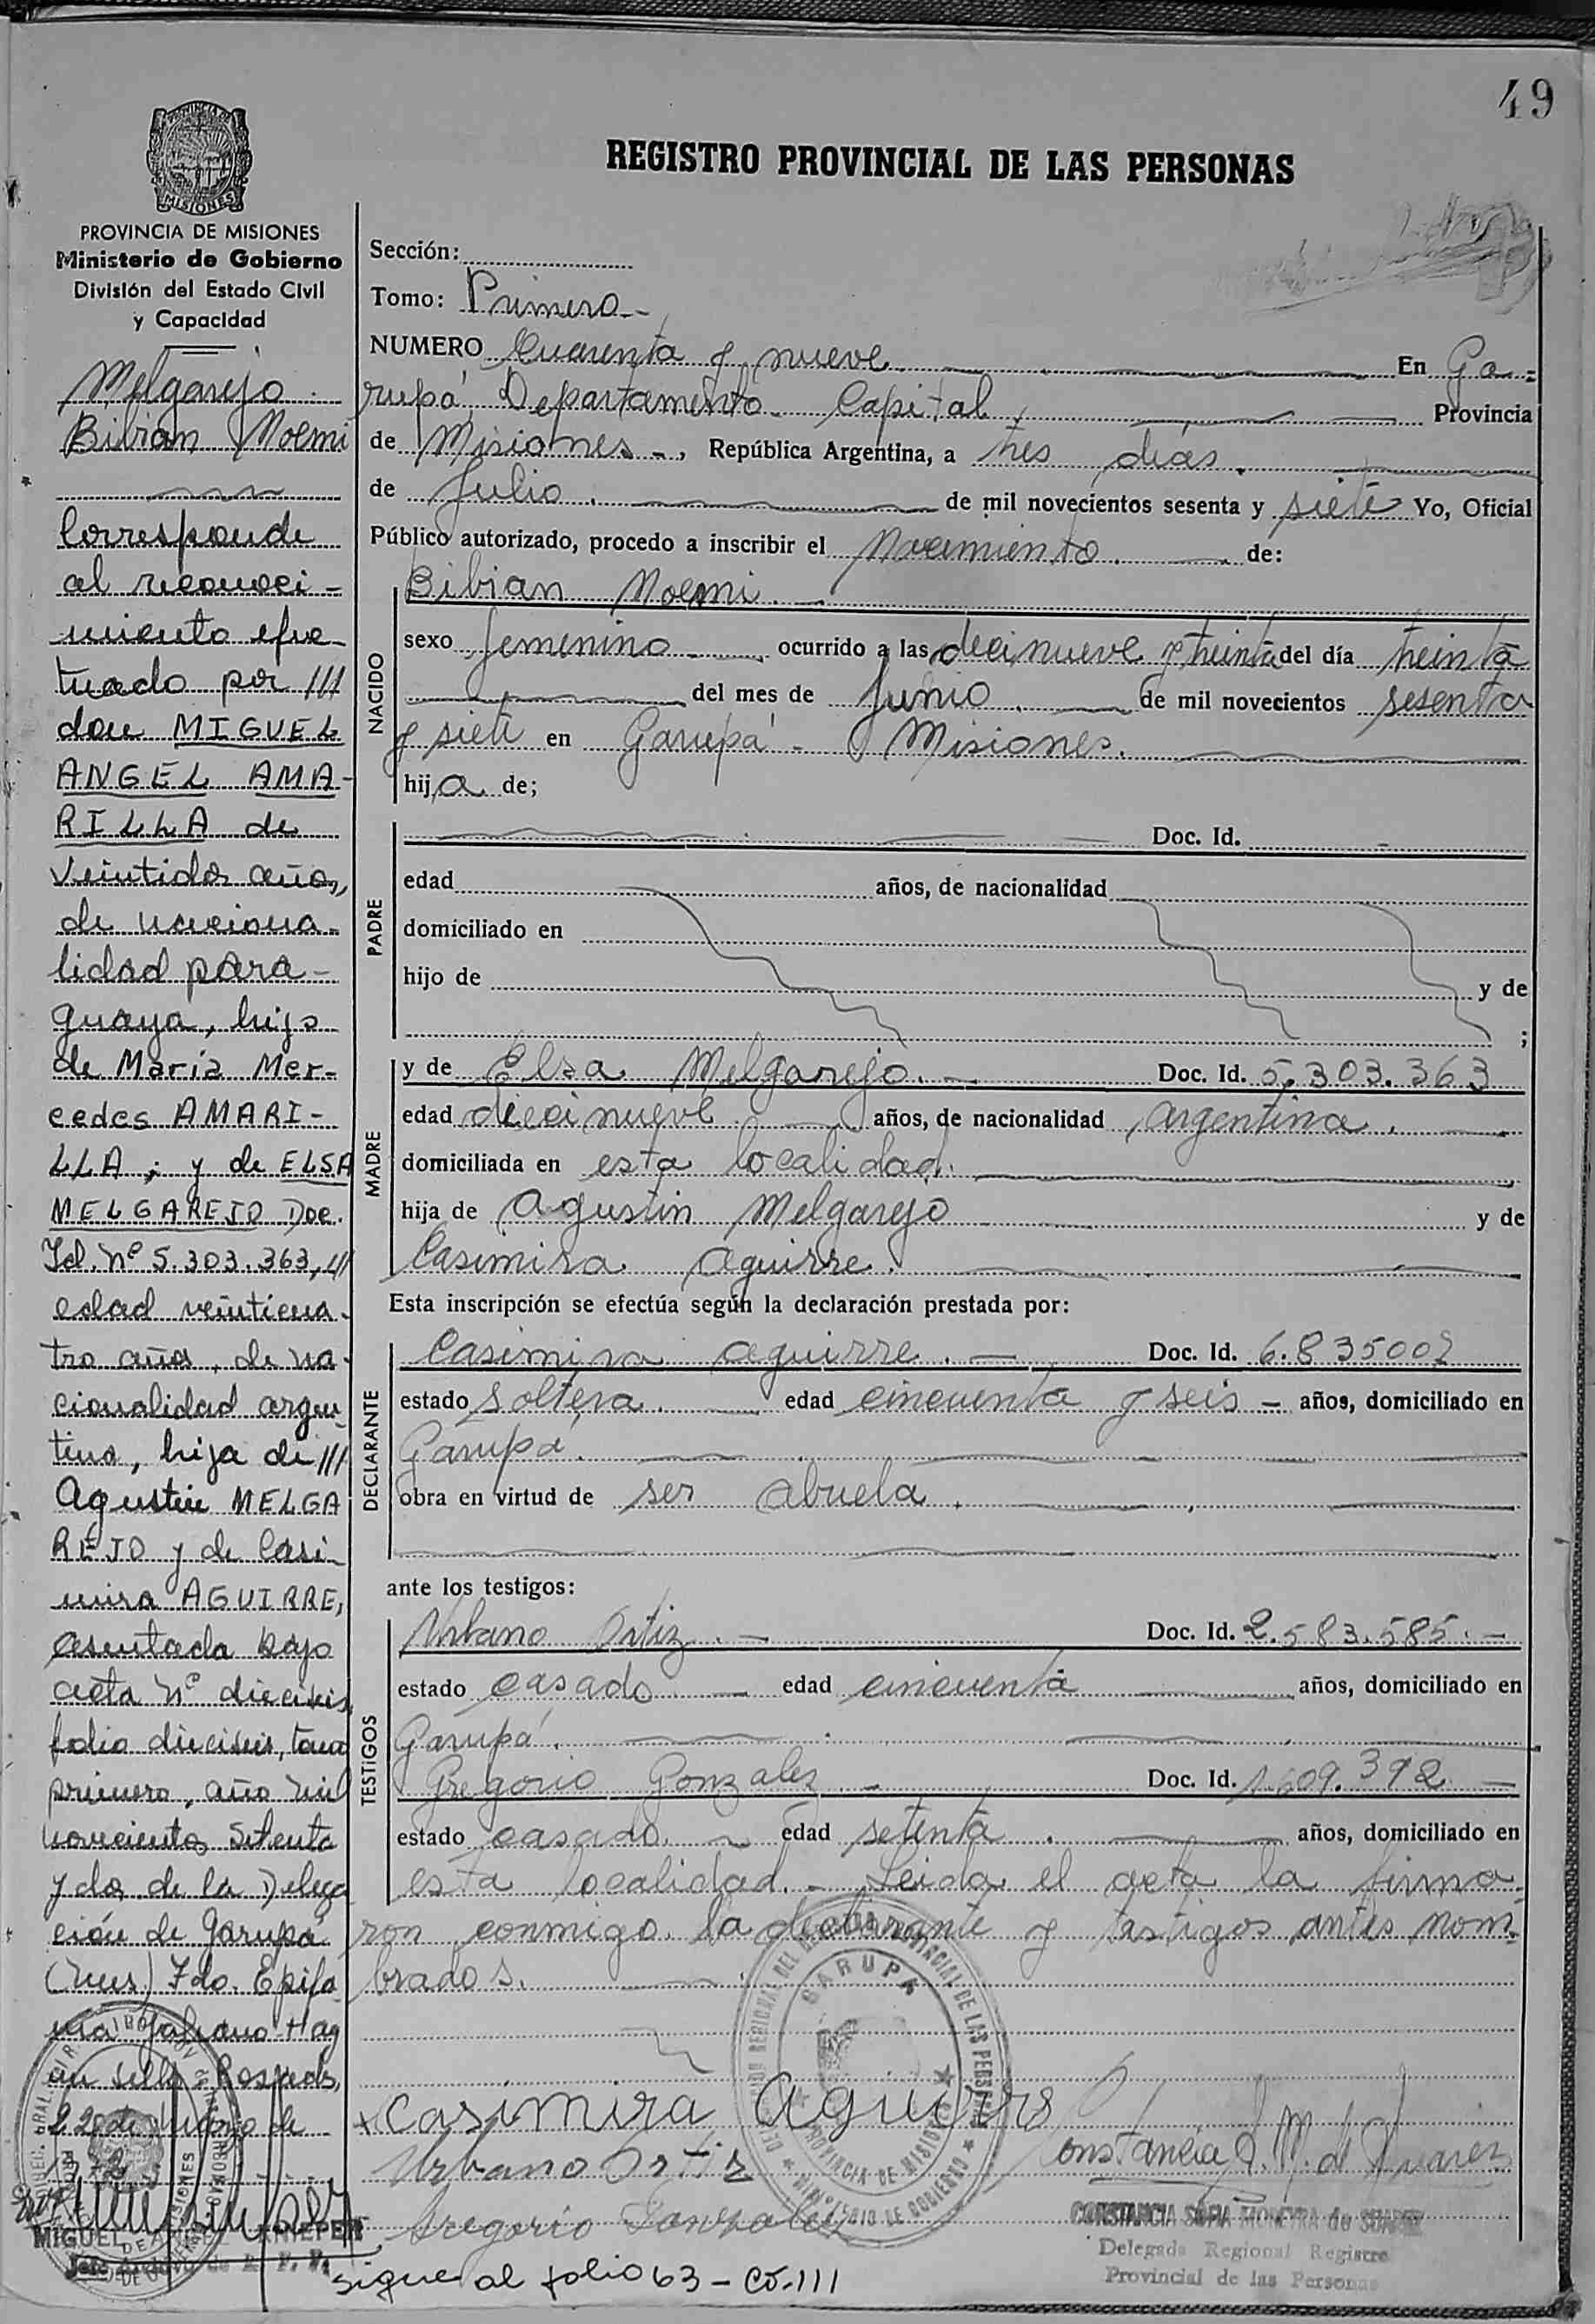 49
REGISTRO PROVINCIAL DE LAS PERSONAS
PROVINCIA DE MISIONES
Ministerio de Gobierno
División del Estado Civil
y Capacidad
Melgarejo.
Bibian Noemi
Corresponde
al reconoci-
miento efec-
tuado por ///
don MIGUEL
ANGEL AMA-
RILLA de
veintidos años,
de naciona-
lidad para-
guaya, hijo
de María Mer-
cedes AMARI-
LLA; y de ELSA
MELGAREJO Doc.
Id. Nº 5.303.363, //
edad veinticua-
tro años, de na-
cionalidad argen-
tina, hija de ///
Agustin MELGA
REJO y de Casi-
mira AGUIRRE,
asentada bajo
acta Nº dieciseis,
folio dieciseis, tomo
primero, año mil
novecientos setenta
y dos de la Delega
ción de Garupá
(Mnes.) Fdo. Epifa
un sello. Posadas,
22 de Marzo de
MIGUEL
Sección:
Tomo: Primero.-
NUMERO Cuarenta y nueve. En Ga-
rupá, Departamento Capital, Provincia
de Misiones.-, República Argentina, a tres días.
de Julio. de mil novecientos sesenta y siete Yo, Oficial
Público autorizado, procedo a inscribir el Nacimiento. de:
NACIDO
Bibian Noemi.-
sexo femenino ocurrido a las diecinueve y treinta del día treinta
del mes de Junio. de mil novecientos sesenta
y siete en Garupá - Misiones.
hija de;
PADRE
Doc. Id.
edad años, de nacionalidad
domiciliado en
hijo de y de
;
MADRE
y de Elsa Melgarejo.- Doc. Id. 5.303.363
edad diecinueve años, de nacionalidad argentina.
domiciliada en esta localidad.
hija de Agustin Melgarejo y de
Casimira Aguirre.
Esta inscripción se efectúa según la declaración prestada por:
DECLARANTE
Casimira Aguirre.- Doc. Id.
estado soltera. edad cincuenta y seis - años, domiciliado en
Garupá.
obra en virtud de ser abuela.
ante los testigos:
TESTIGOS
Urbano Ortiz.- Doc. Id. 2.583.585.-
estado casado edad cincuenta años, domiciliado en
Garupá.
Gregorio Gonzalez.- Doc. Id. 1.609.392
estado casado. edad setenta. años, domiciliado en
esta localidad.- Leida el acta la firma-
ron conmigo la declarante y testigos antes nom-
brados.
GARUPA
PROVINCIA DE MISIONES
MINISTERIO DE GOBIERNO
casimira Aguirre
Urbano Ortiz
Gregorio Gonzalez
Constancia S. M. de Suarez
CONSTANCIA SOFIA MONEYRA de SUAREZ
Delegada Regional Registro
Provincial de las Personas
Sigue al folio 63-